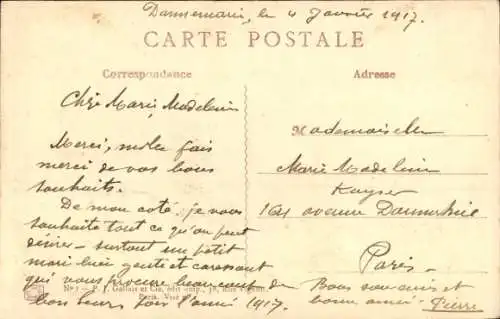 Dannemarie, le 4 Janvier 1917.
CARTE POSTALE
Correspondance
Adresse
Chère Marie Madeleine
Merci, mille fois
merci de vos bons
souhaits.
De mon coté, je vous
souhaite tout ce qu'on peut
désirer — surtout un petit
mari bien gentil et caressant
qui vous procure beaucoup de
bon heur, l'année 1917.
Mademoiselle
Marie Madeleine
Kayser
164 avenue
Paris
Bons souvenirs et
bonne année. Pierre
P. J. Gallais et Cie, édit
Paris.